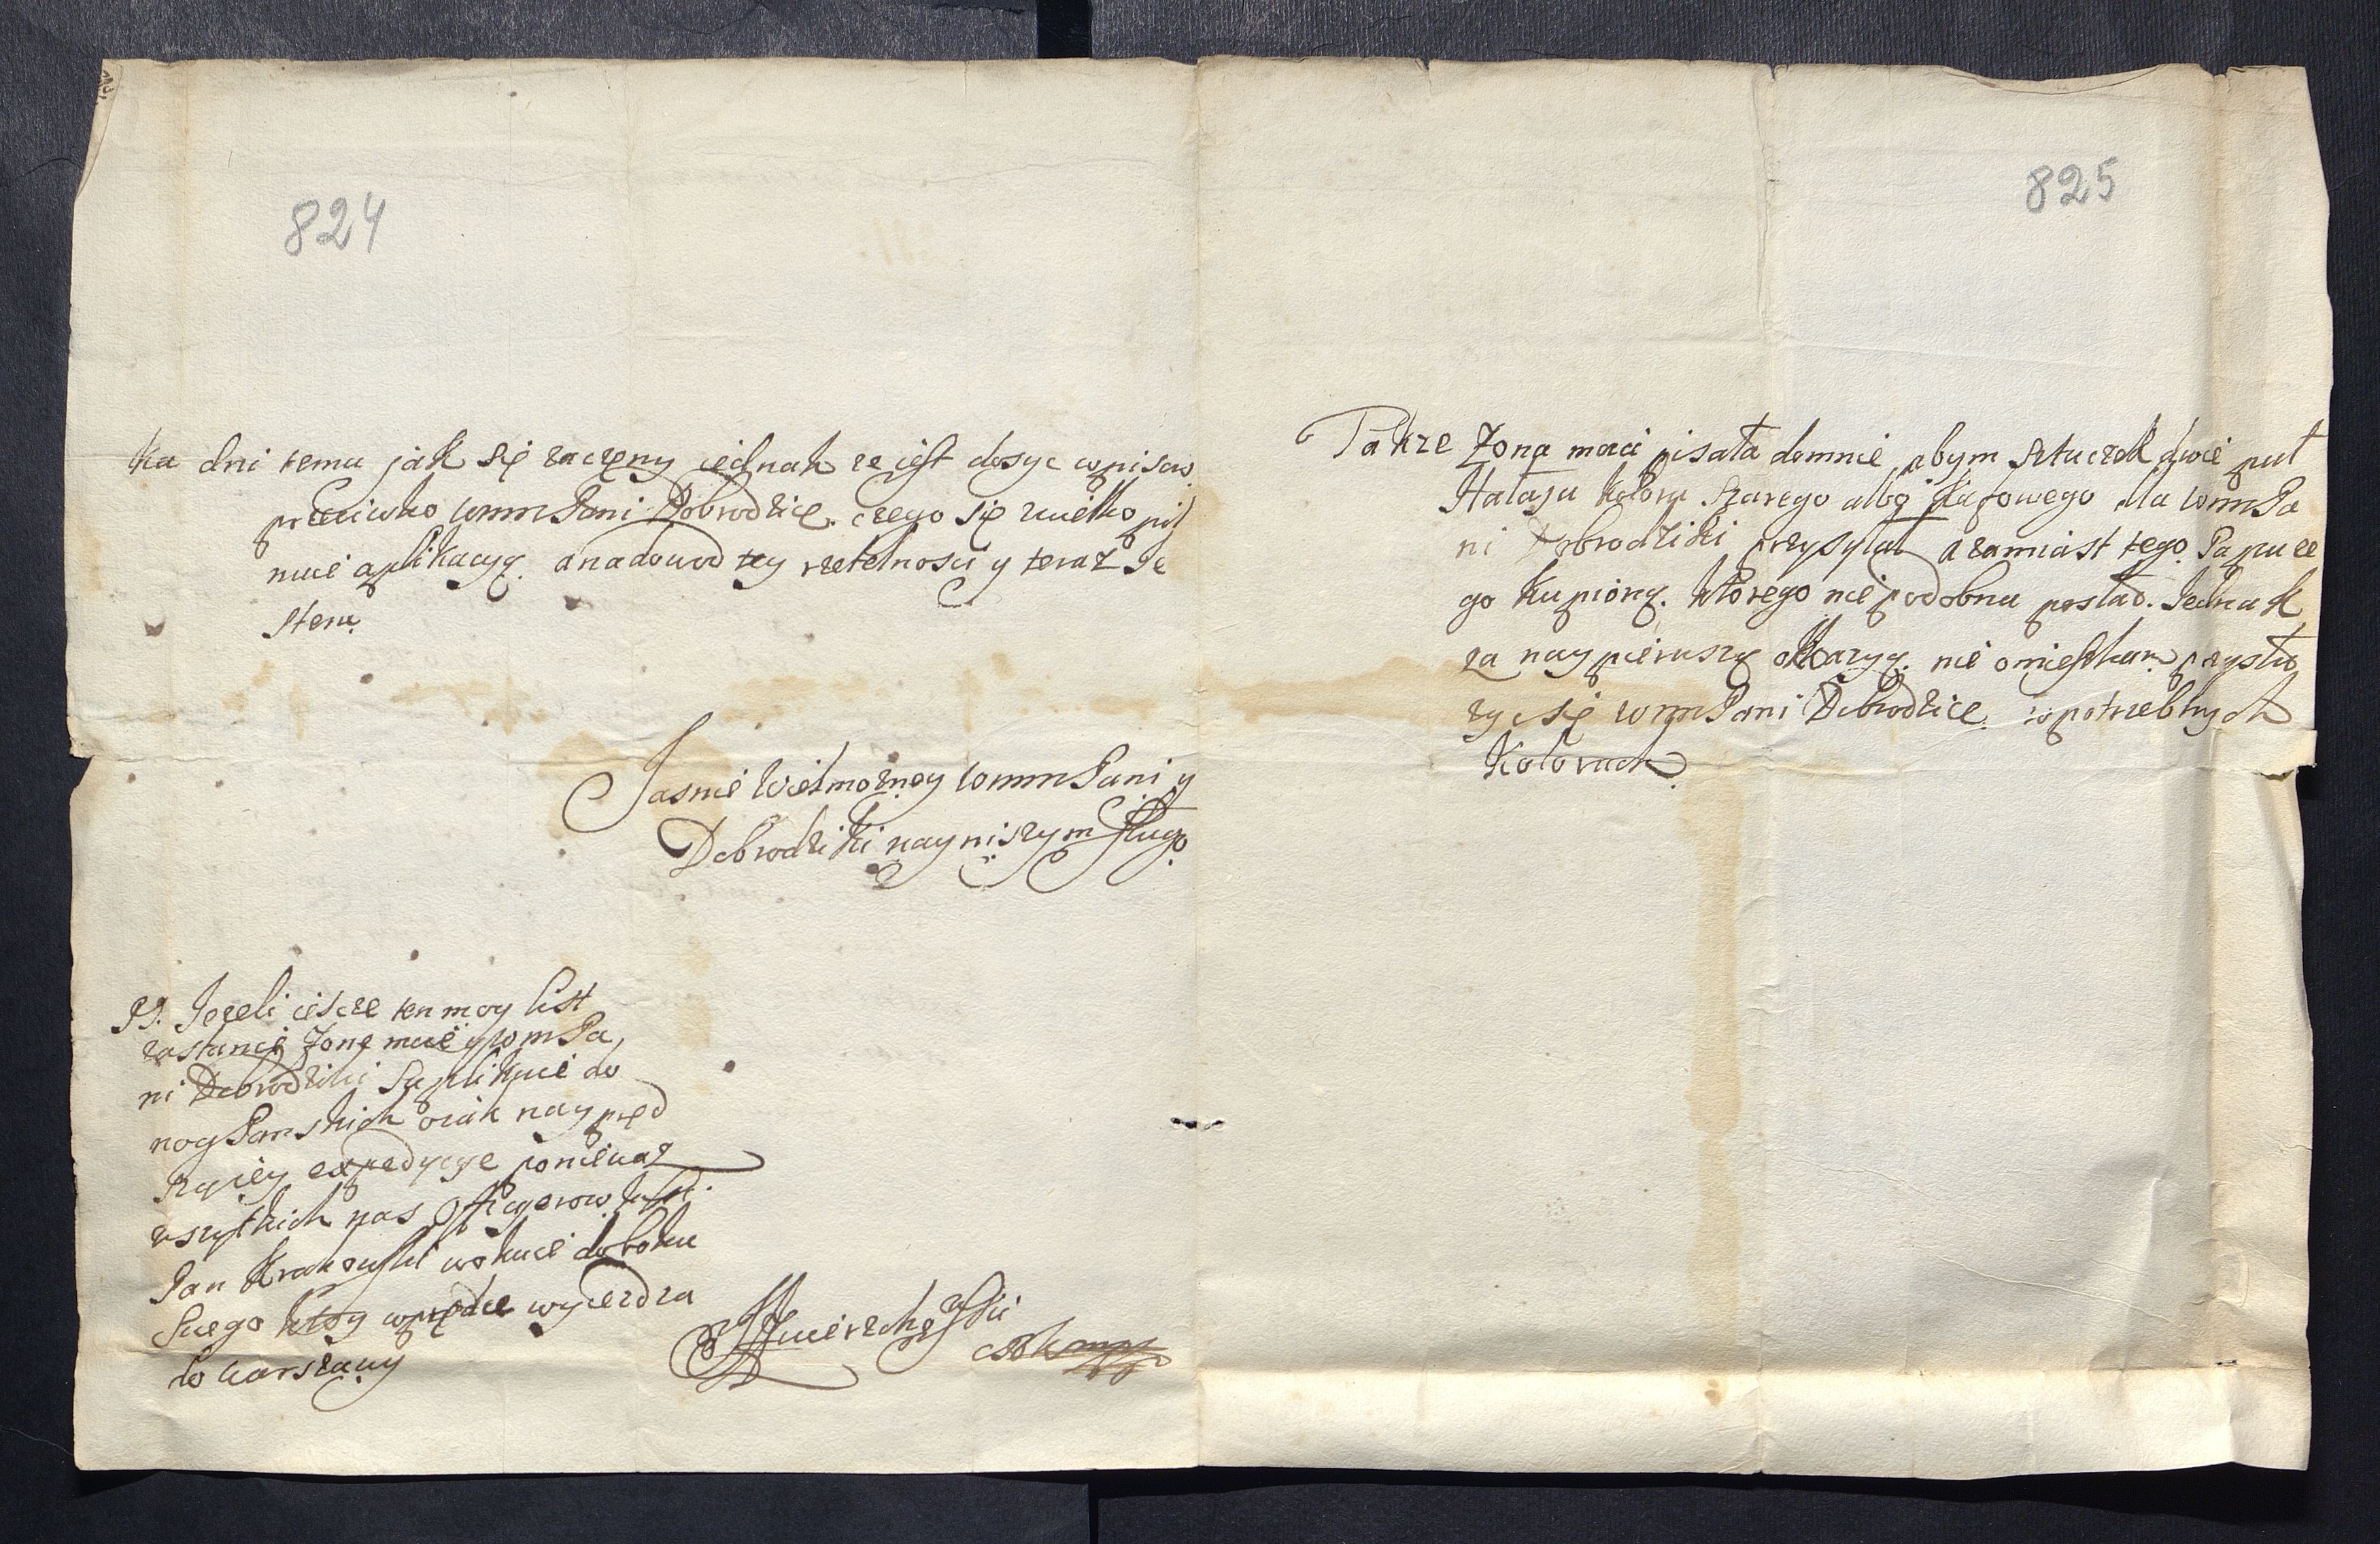 824
ka dni temu jak się zaczęny iednak ze iest dosyc wpisaw
przeciwko wmmPani Dobrodzice. czego się zwielko pil
nuie aplikacyą. anadowod tey rzetelnosci y teraz Je
stem
Jasnie Wielmozney wmmPani y
Dobrodziki nayniszym sługo
PS. Jezeli ieszcze ten moy list
zastanie Zonę moie y wmPa
ni Dobrodziki suplikuie do
nog Panskich oiak naypręd
szą iey expedycye poniewaz
wszystkich nas Officyerow
Pan Krakowski wokuie do boku
swego ktory wprędce wyiezdza
do warszawy
825
Takze Zona moia pisała domnie abym sztuczek dwie puł
Hatasu koloru szarego albo kafowego dla wmmPa
ni Dobrodziki przysyłał a zamiast tego Papuze
go kupiono. ktorego niepodobna posłac. Jednak
za naypierwszą okazyą. nie omieszkam przysłu
zyc się wmmPani Dobrodzice. wpotrzebnych
Kolorach